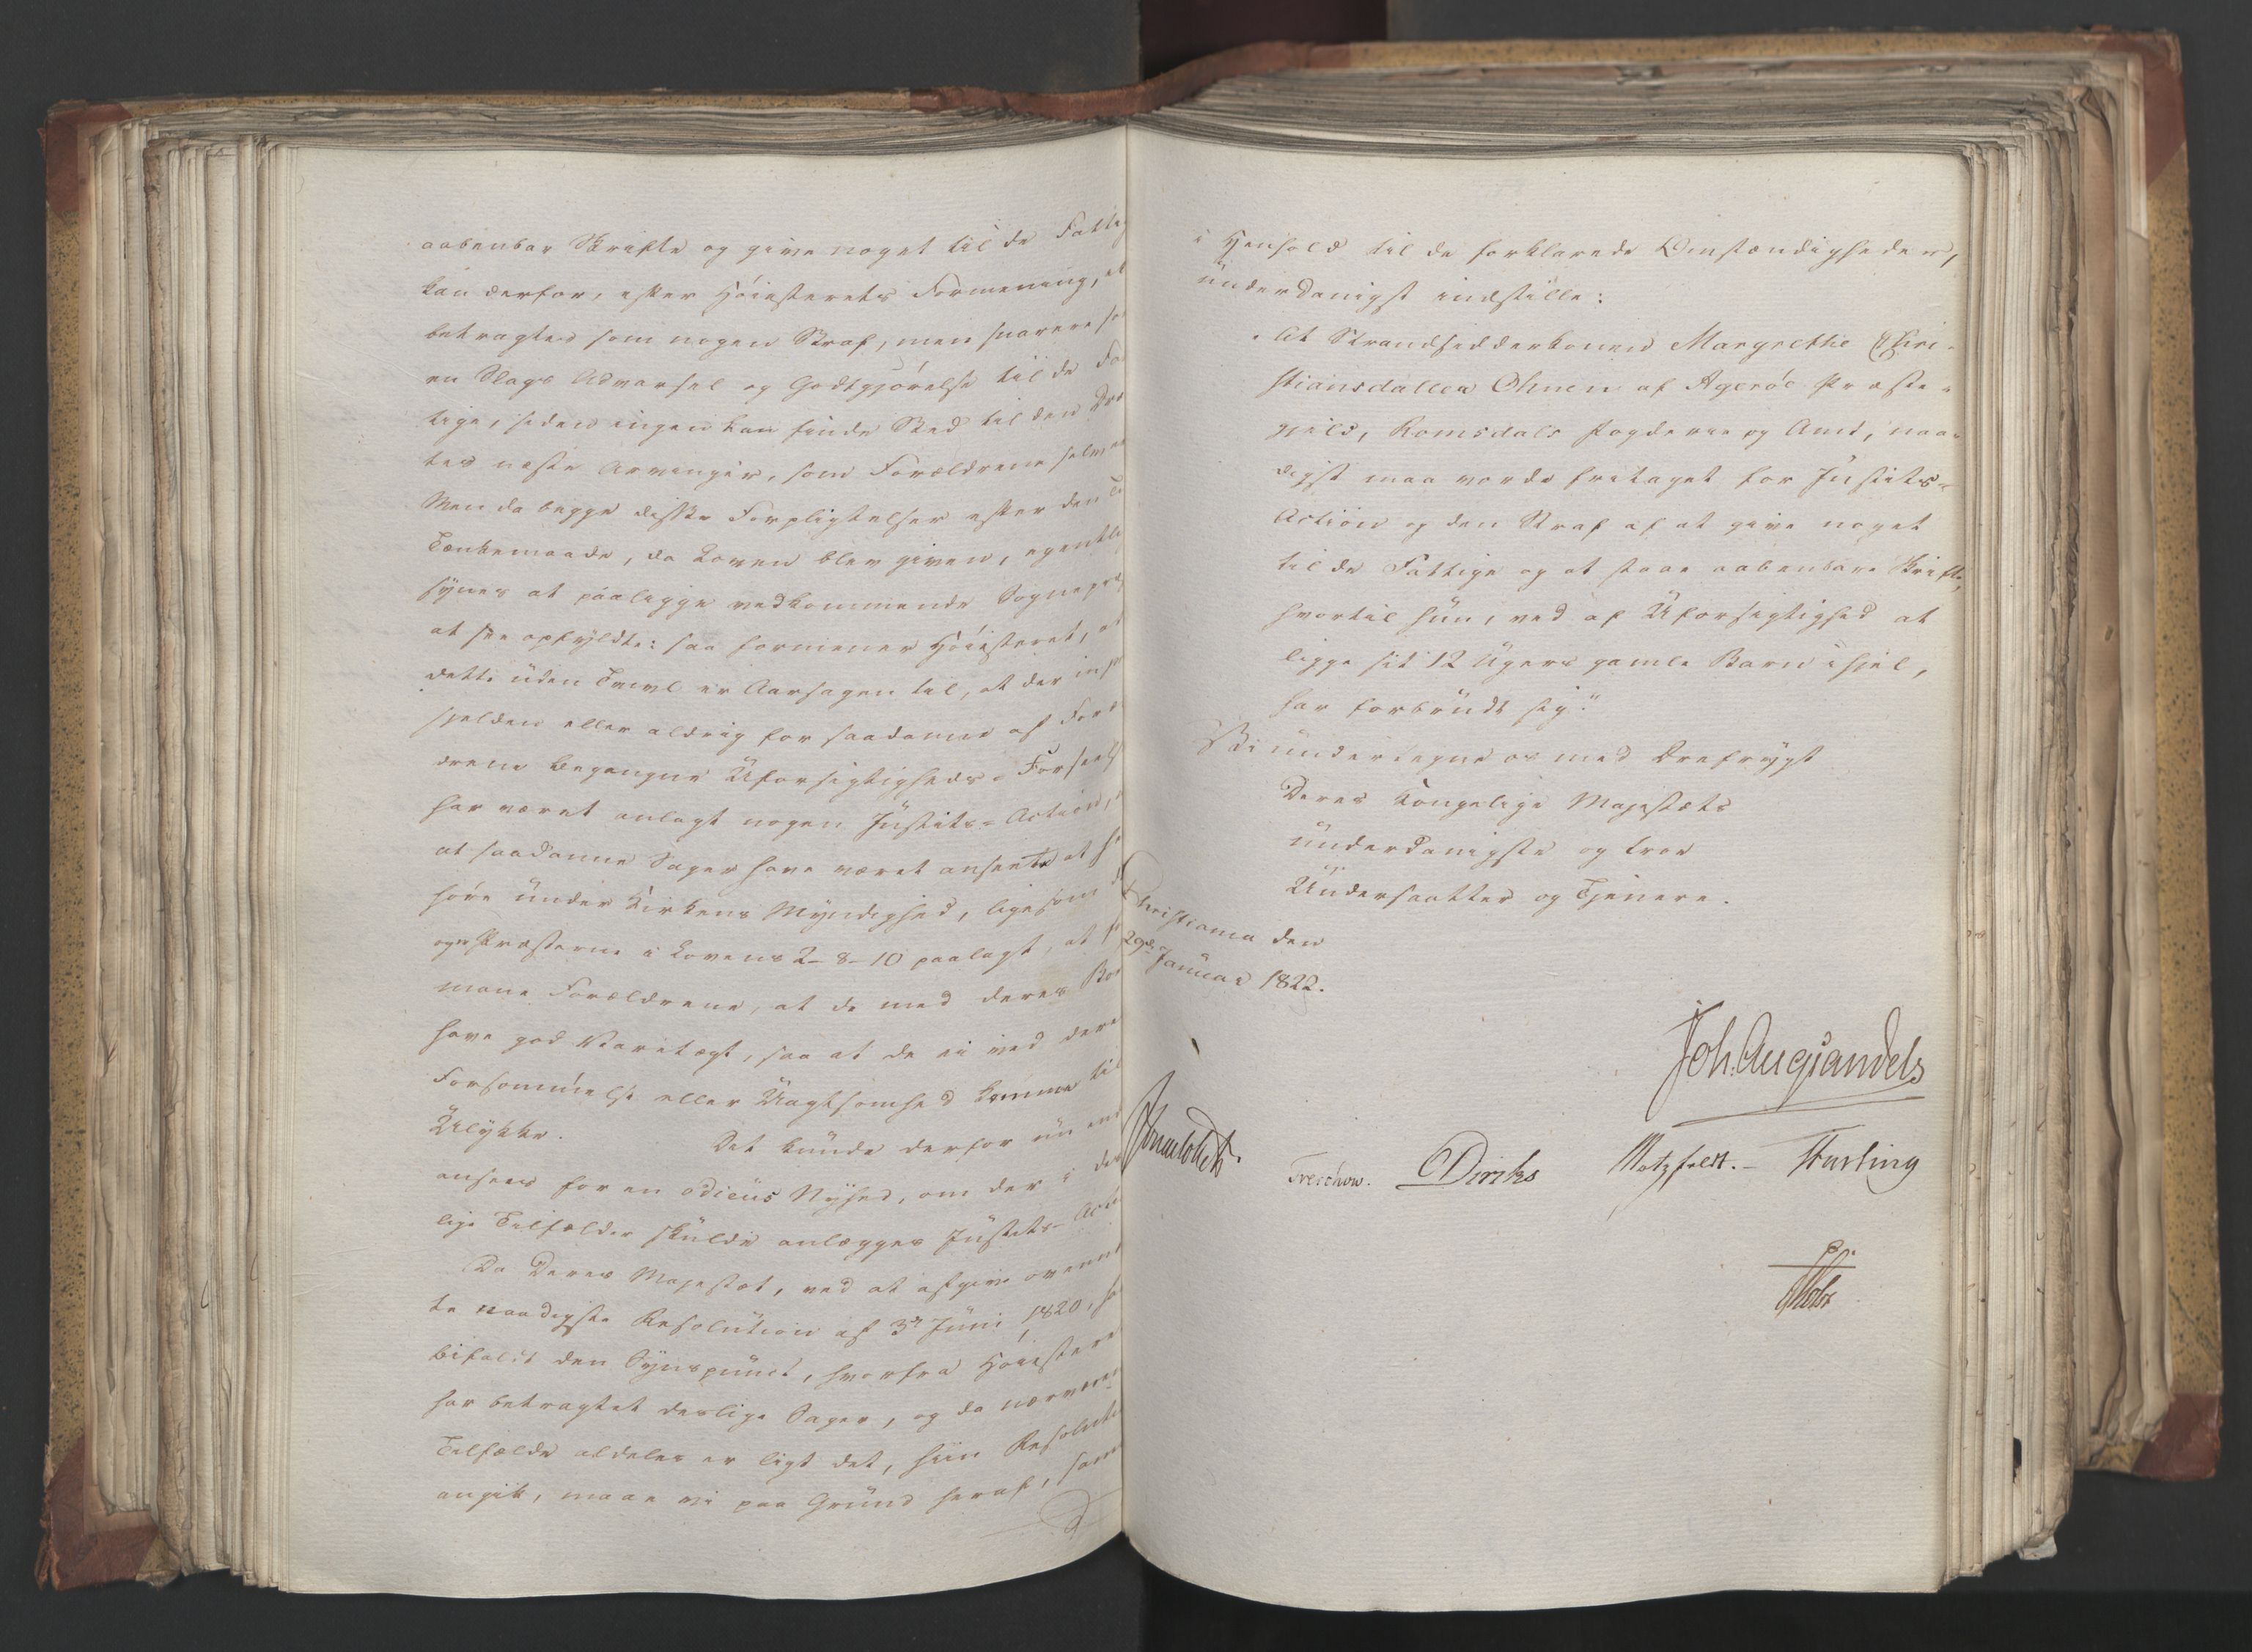 aabenbar Skrifte og give noget til de Fattig
kan derfor, efter Høiesterets Formening, ei
betragtes som nogen Straf, men snarere so
en Slags Advarsel og Godtgjørelse til de Fat
tige, siden ingen kan finde Sted til den Dræ
tes neste Arvinger, som Forældrene selv er
Men da begge disse Forpligtelser efter den
Tænkemaade, da Loven blev given, egentlig
synes at paaligge vedkommende Sognepræ
at see opfyldte: saa formener Høiesteret, at
dette uden Tvivl er Aarsagen til, at der
sjelden eller aldrig for saadanne af Foræl
drene begangne Uforsigtigheds-Forseels
har været anlagt nogen Justits-Action,
at saadanne Sager have været ansete at
høre under Kirkens Myndighed, ligesom
og Præsterne i Lovens 2-8-10 paalagt, at
mane Forældrene, at de med deres Bør
have god Varetægt, saa at de ei ved dere
Forsømmelse eller Uagtsomhed komme til
Ulykke. Det kunde derfor nu
ansees for en odieus Nyhed, om der i des
lige Tilfælde skulde anlægges Justits-Acti
Da Deres Majestæt, ved at afgive ovenme
te naadigste Resolution af 3de Juni 1820, ha
bifaldt den Synspunct, hvorfra Høiestere
har betragtet deslige Sager, og da nærværen
Tilfælde aldeles er ligt det, hiin Resoluti
angik, maae vi paa Grund heraf, sam
i Henhold til de forklarede Omstændigheder,
underdanigst indstille:
"At Strandsidderkonen Margrethe Chri-
stiansdatter Ohnen af Agerøe Præste-
gjeld, Romsdals Fogderie og Amt, naa-
digst maa vorde fritaget for Justits-
Action og den Straf af at give noget
til de Fattige og at staae aabenbare Skrifte,
hvortil hun, ved af Uforsigtighed at
ligge sit 12 Ugers gamle Barn ihjel,
har forbrudt sig."
Vi undertegne os med Ærefrygt
Deres Kongelige Majestæts
underdanigste og troe
Undersaatter og Tjenere.
Christiania den
29de Januar 1822.
Joh. Aug Sandels
Sommerhielm.
Treschow. Diriks Motzfeldt. - Fasting
Holst